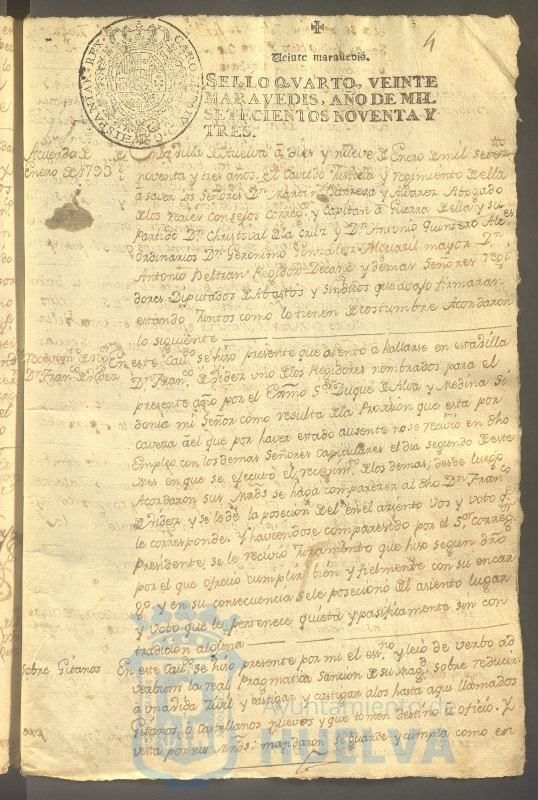 4
Veinte maravedis.
SELLO QVARTO, VEINTE
MARAVEDIS, AÑO DE MIL
SETECIENTOS NOVENTA Y
TRES.
HISPANIAR REX CAROLUS D G
Acuerdo
Enero 1793
En la Villa Huelva a dies y nueve Enero mil setec.
noventa y tres años, el Cavildo Justicia y regimiento ella
a saver los Señores Dn. Martin Barrera y Alvarez Abogado
los reales Consejos Correg. y Capitan a Guerra ella y su
partido Dn. Christoval la Cruz y Dn. Antonio Quintero Alc.
ordinarios Dn. Geronimo Gonzalez Alguasil mayor Dn.
Antonio Beltran Regidor Decano y demas Señores regi
dores Diputados Abastos y sindicos que avajo firmaran
estando Juntos como lo tienen costumbre Acordaron
lo siguiente
Dn. Franco.
En este Cavdo. se hiso presente que atento a hallarse en esta Villa
Dn. Franco. uno los Regidores nombrados para el
presente año por el Exmo. Sr. Duque Alva y Medina Si
donia mi Señor como resulta la Provision que esta por
cavera el que por haver estado ausente no se recivio en dho
Empleo con los demas Señores Capitulares el dia segundo este
mes en que se efectuó el recivim. los demas; desde luego
Acordaron sus Mrds. se haga comparecer al dho Dn. Franco.
y se le dé la posecion el en el asiento vos y voto q.
le corresponde. Y haviendose comparesido por el Sor. Correg.
presidente, se le recivio Juramento que hiso segun dro
por el que ofrecio cumplir bien y fielmente con su encar
go, y en su consecuencia se le posecionó el asiento lugar
y voto que le pertenece quieta y pasificamente sin con
tradicion alguna
Sobre Gitanos
En este Cavdo. se hiso presente por mi el esno. y leió de verbo ad
verbum la real Pragmatica Sancion su Magd. sobre reducir
á una vida Civil y castigar alos hasta aqui llamados
Gitanos, ó Castellanos nuevos y que tomen destino ú oficio. Y
vista por sus Mrds. mandaron se guarde y cumpla como en
Ayuntamiento de
HUELVA